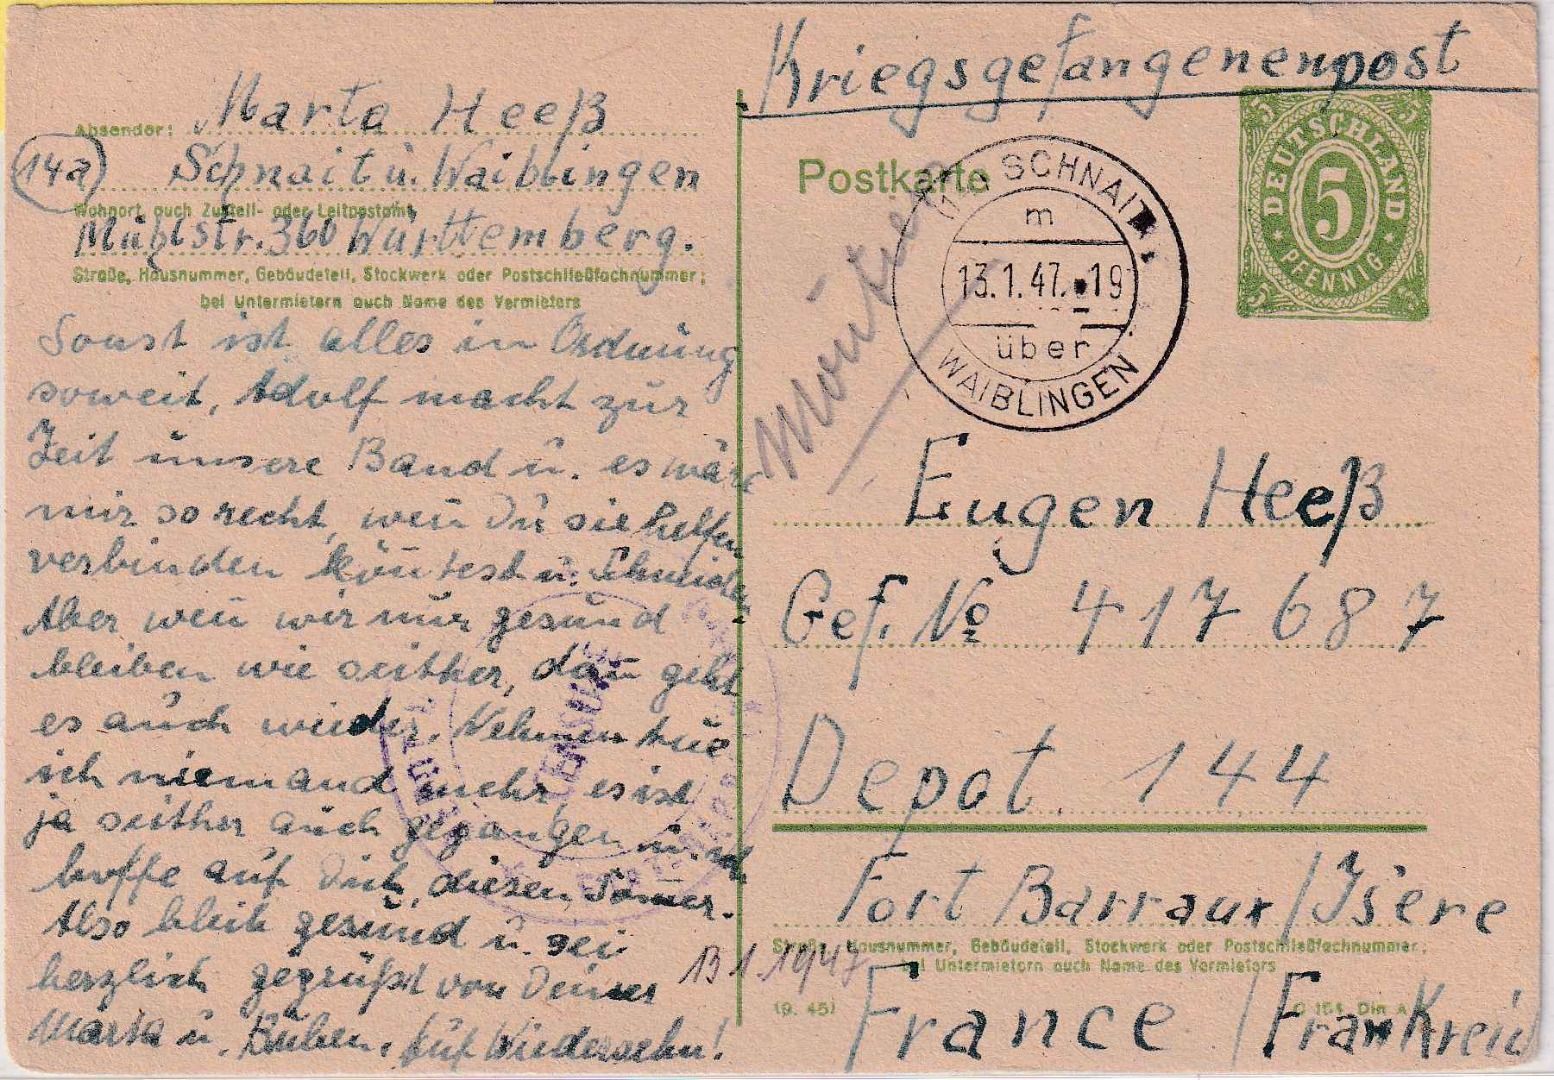 Kriegsgefangenenpost
Absender: Marta Heeß
(14a) Schnait ü. Waiblingen
Wohnort, auch Zustell- oder Leitpostamt
Mühlstr. 360 Württemberg.
Straße, Hausnummer, Gebäudeteil, Stockwerk oder Postschließfachnummer;
bei Untermietern auch Name des Vermieters
Sonst ist alles in Ordnung
soweit, Adolf macht zur
Zeit unsere Band u. es wär
mir so recht, weñ Du sie helfen
verbinden köñtest u.
Aber weñ wir nur gesund
bleiben wie seither, dañ geht
es auch wieder. Nehmen tue
ich niemand mehr, es ist
ja seither auch gegangen und
hoffe auf Dich, diesen Somer.
Also bleib gesund u. sei
herzlich gegrüßt von Deiner
Marta u. Buben. Auf Wiedersehn!
13.1.1947
ZENSURE
Postkarte
SCHNAIT
m
13.1.47.-19
über
WAIBLINGEN
DEUTSCHLAND
5
PFENNIG
5 5 5 5
Eugen Heeß
Gef. No 417687
Depot. 144
Fort Barraux/Isère
Straße, Hausnummer, Gebäudeteil, Stockwerk oder Postschließfachnummer;
bei Untermietern auch Name des Vermieters
France / Frankreich
(9. 45)
C 154 Din A